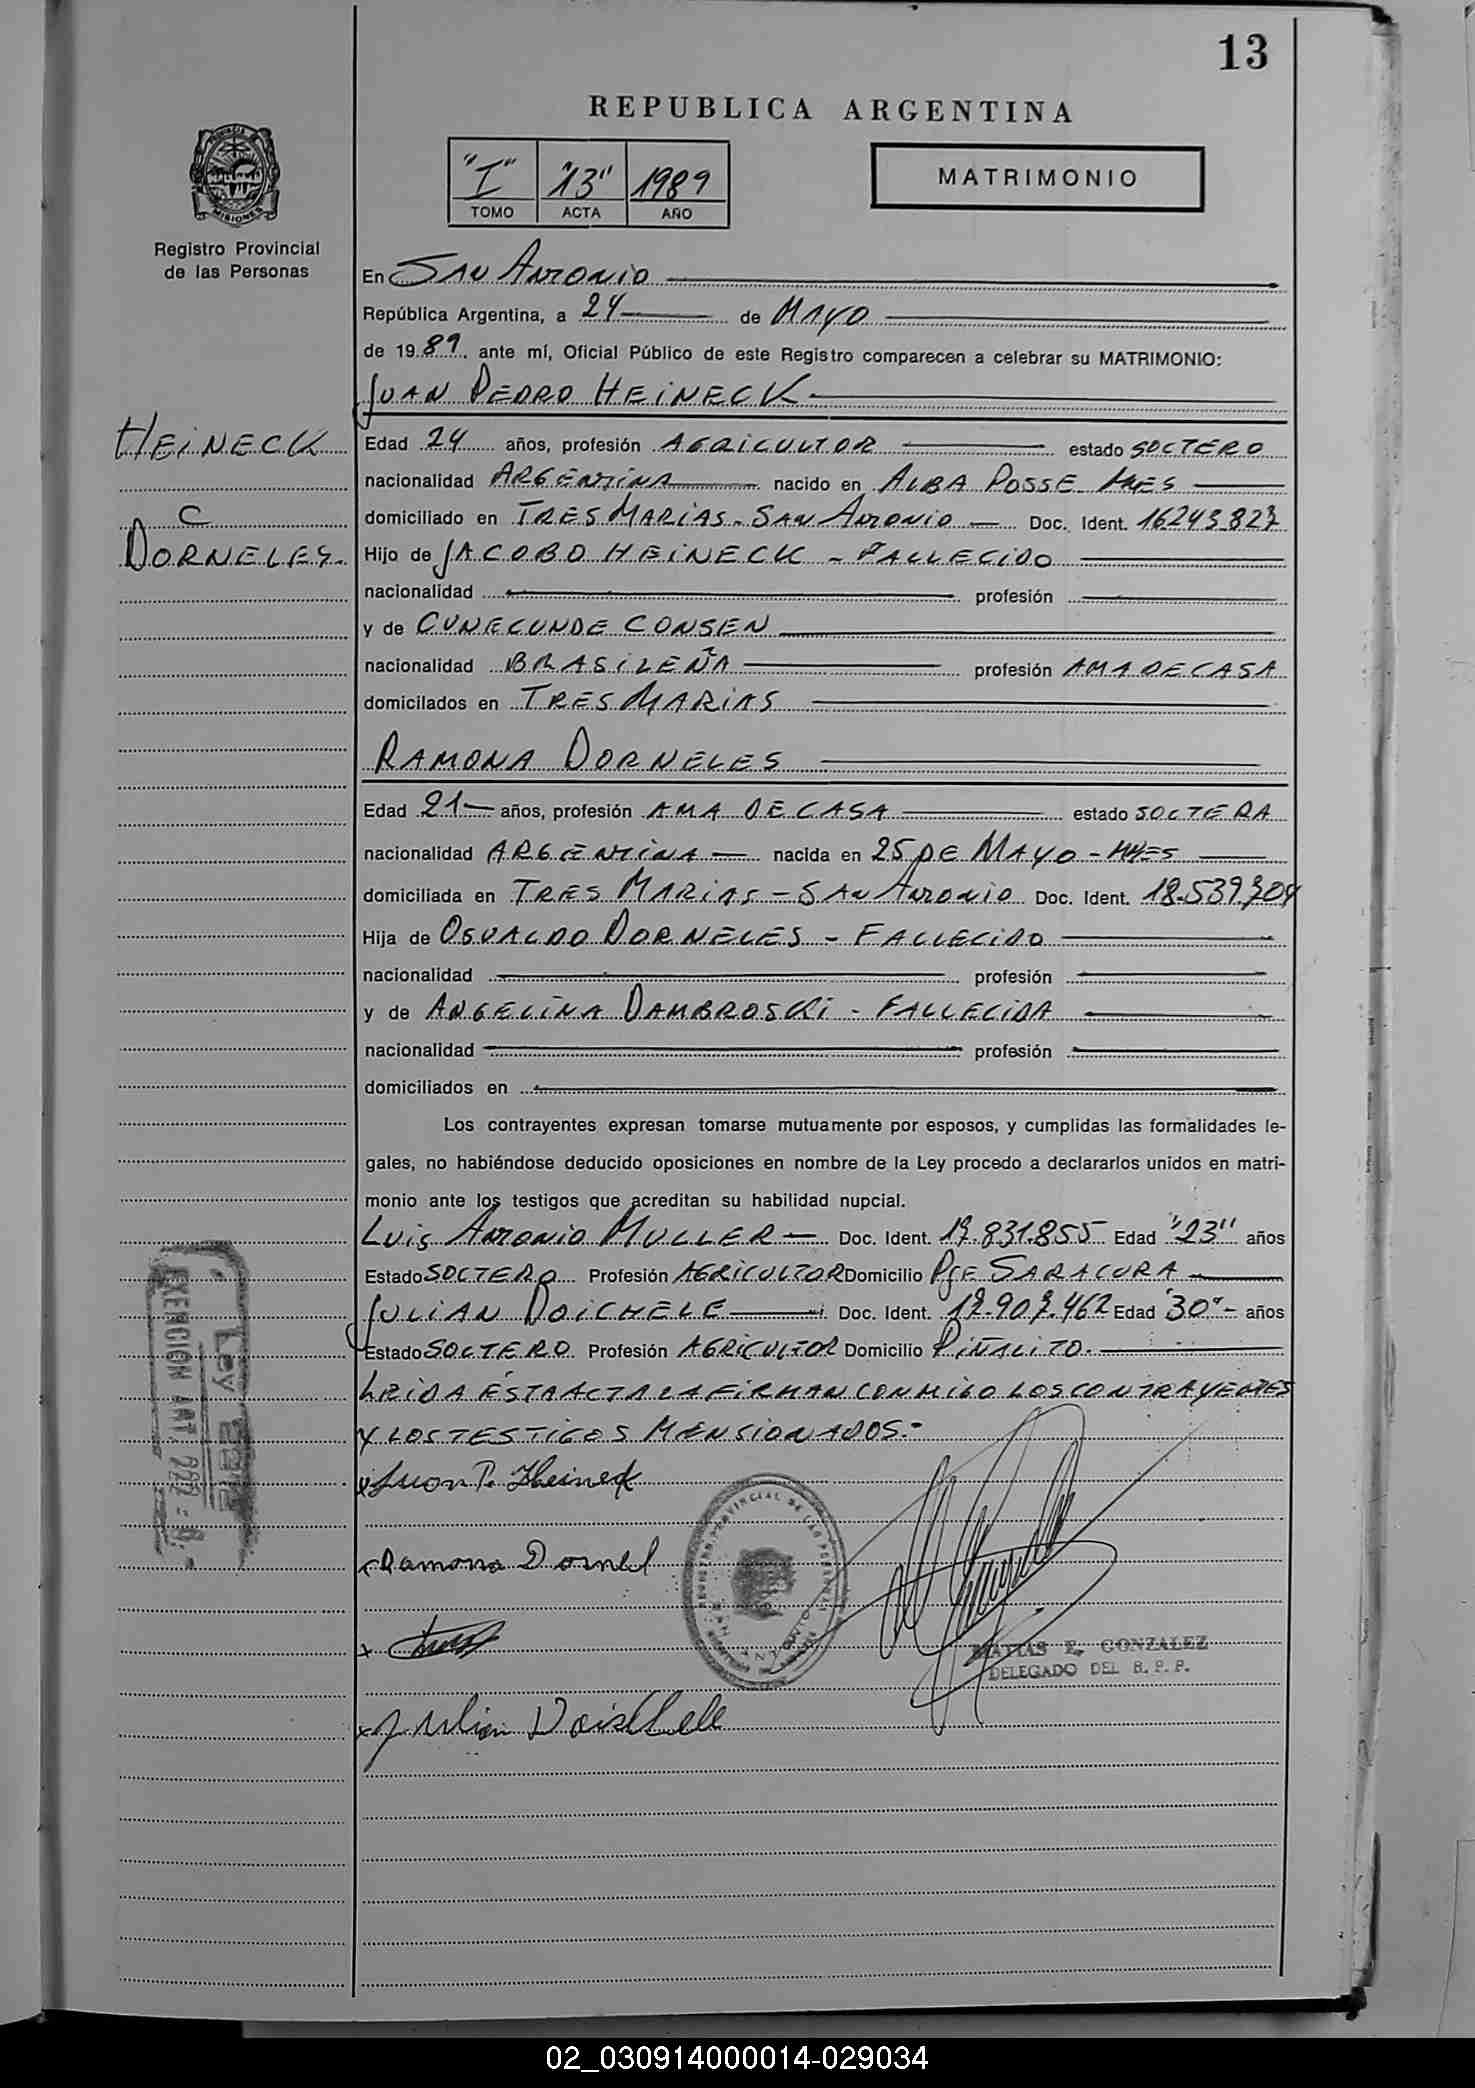 13
REPUBLICA ARGENTINA
"I" "13" 1989
TOMO ACTA AÑO
MATRIMONIO
PROVINCIA DE
MISIONES
Registro Provincial
de las Personas
En SAN ANTONIO
República Argentina, a 24 de MAYO
de 1989. ante mí, Oficial Público de este Registro comparecen a celebrar su MATRIMONIO:
JUAN PEDRO HEINECK
HEINECK
C
DORNELES.
Edad 24 años, profesión AGRICULTOR estado SOLTERO
nacionalidad ARGENTINA nacido en ALBA POSSE MNES
domiciliado en TRES MARIAS - SAN ANTONIO Doc. Ident. 16243.827
Hijo de JACOBO HEINECK - FALLECIDO
nacionalidad profesión
y de CUNECUNDE CONSEN
nacionalidad BRASILEÑA profesión AMA DE CASA
domicilados en TRES MARIAS
RAMONA DORNELES
Edad 21 años, profesión AMA DE CASA estado SOLTERA
nacionalidad ARGENTINA nacida en 25 DE MAYO - MNES
domiciliada en TRES MARIAS - SAN ANTONIO Doc. Ident. 18.539.704
Hija de OSVALDO DORNELES - FALLECIDO
nacionalidad profesión
y de ANGELINA DAMBROSKI - FALLECIDA
nacionalidad profesión
domiciliados en
Los contrayentes expresan tomarse mutuamente por esposos, y cumplidas las formalidades le-
gales, no habiéndose deducido oposiciones en nombre de la Ley procedo a declararlos unidos en matri-
monio ante los testigos que acreditan su habilidad nupcial.
LUIS ANTONIO MULLER Doc. Ident. 17.831.855 Edad "23" años
Estado SOLTERO Profesión AGRICULTOR Domicilio PJE SARACURA
JULIAN DOICHELE Doc. Ident. 17.907.462 Edad "30" años
Estado SOLTERO Profesión AGRICULTOR Domicilio PIÑALITO.
LEIDA ESTA ACTA LA FIRMAN CONMIGO LOS CONTRAYENTES
Y LOS TESTIGOS MENSIONADOS.-
x Juan P. Heineck
x Ramona Dornel
x
x Julian Doichele
EXENCION ART. 222
Ley
REGISTRO PROVINCIAL DE LAS PERSONAS
SAN ANTONIO
MATIAS E. GONZALEZ
DELEGADO DEL R. P. P.
02_030914000014-029034